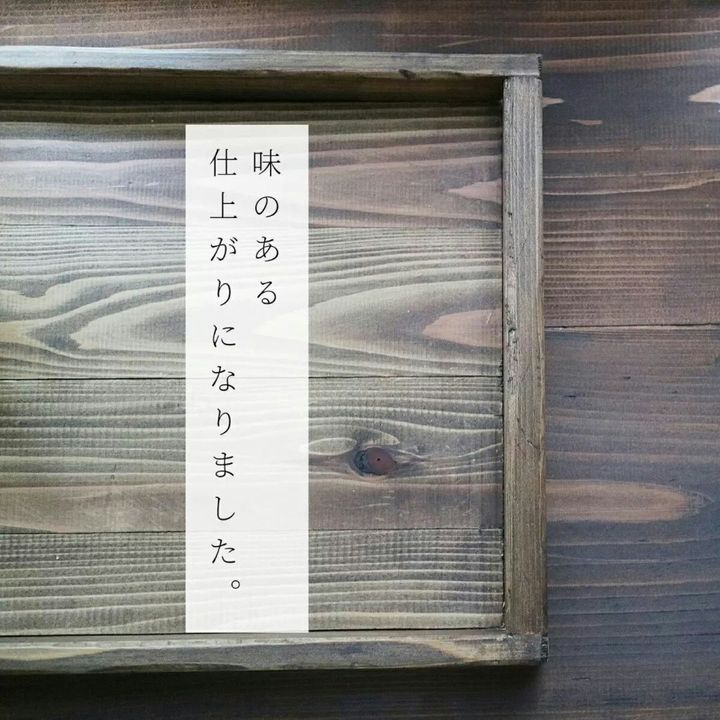 味のある
仕上がりになりました。